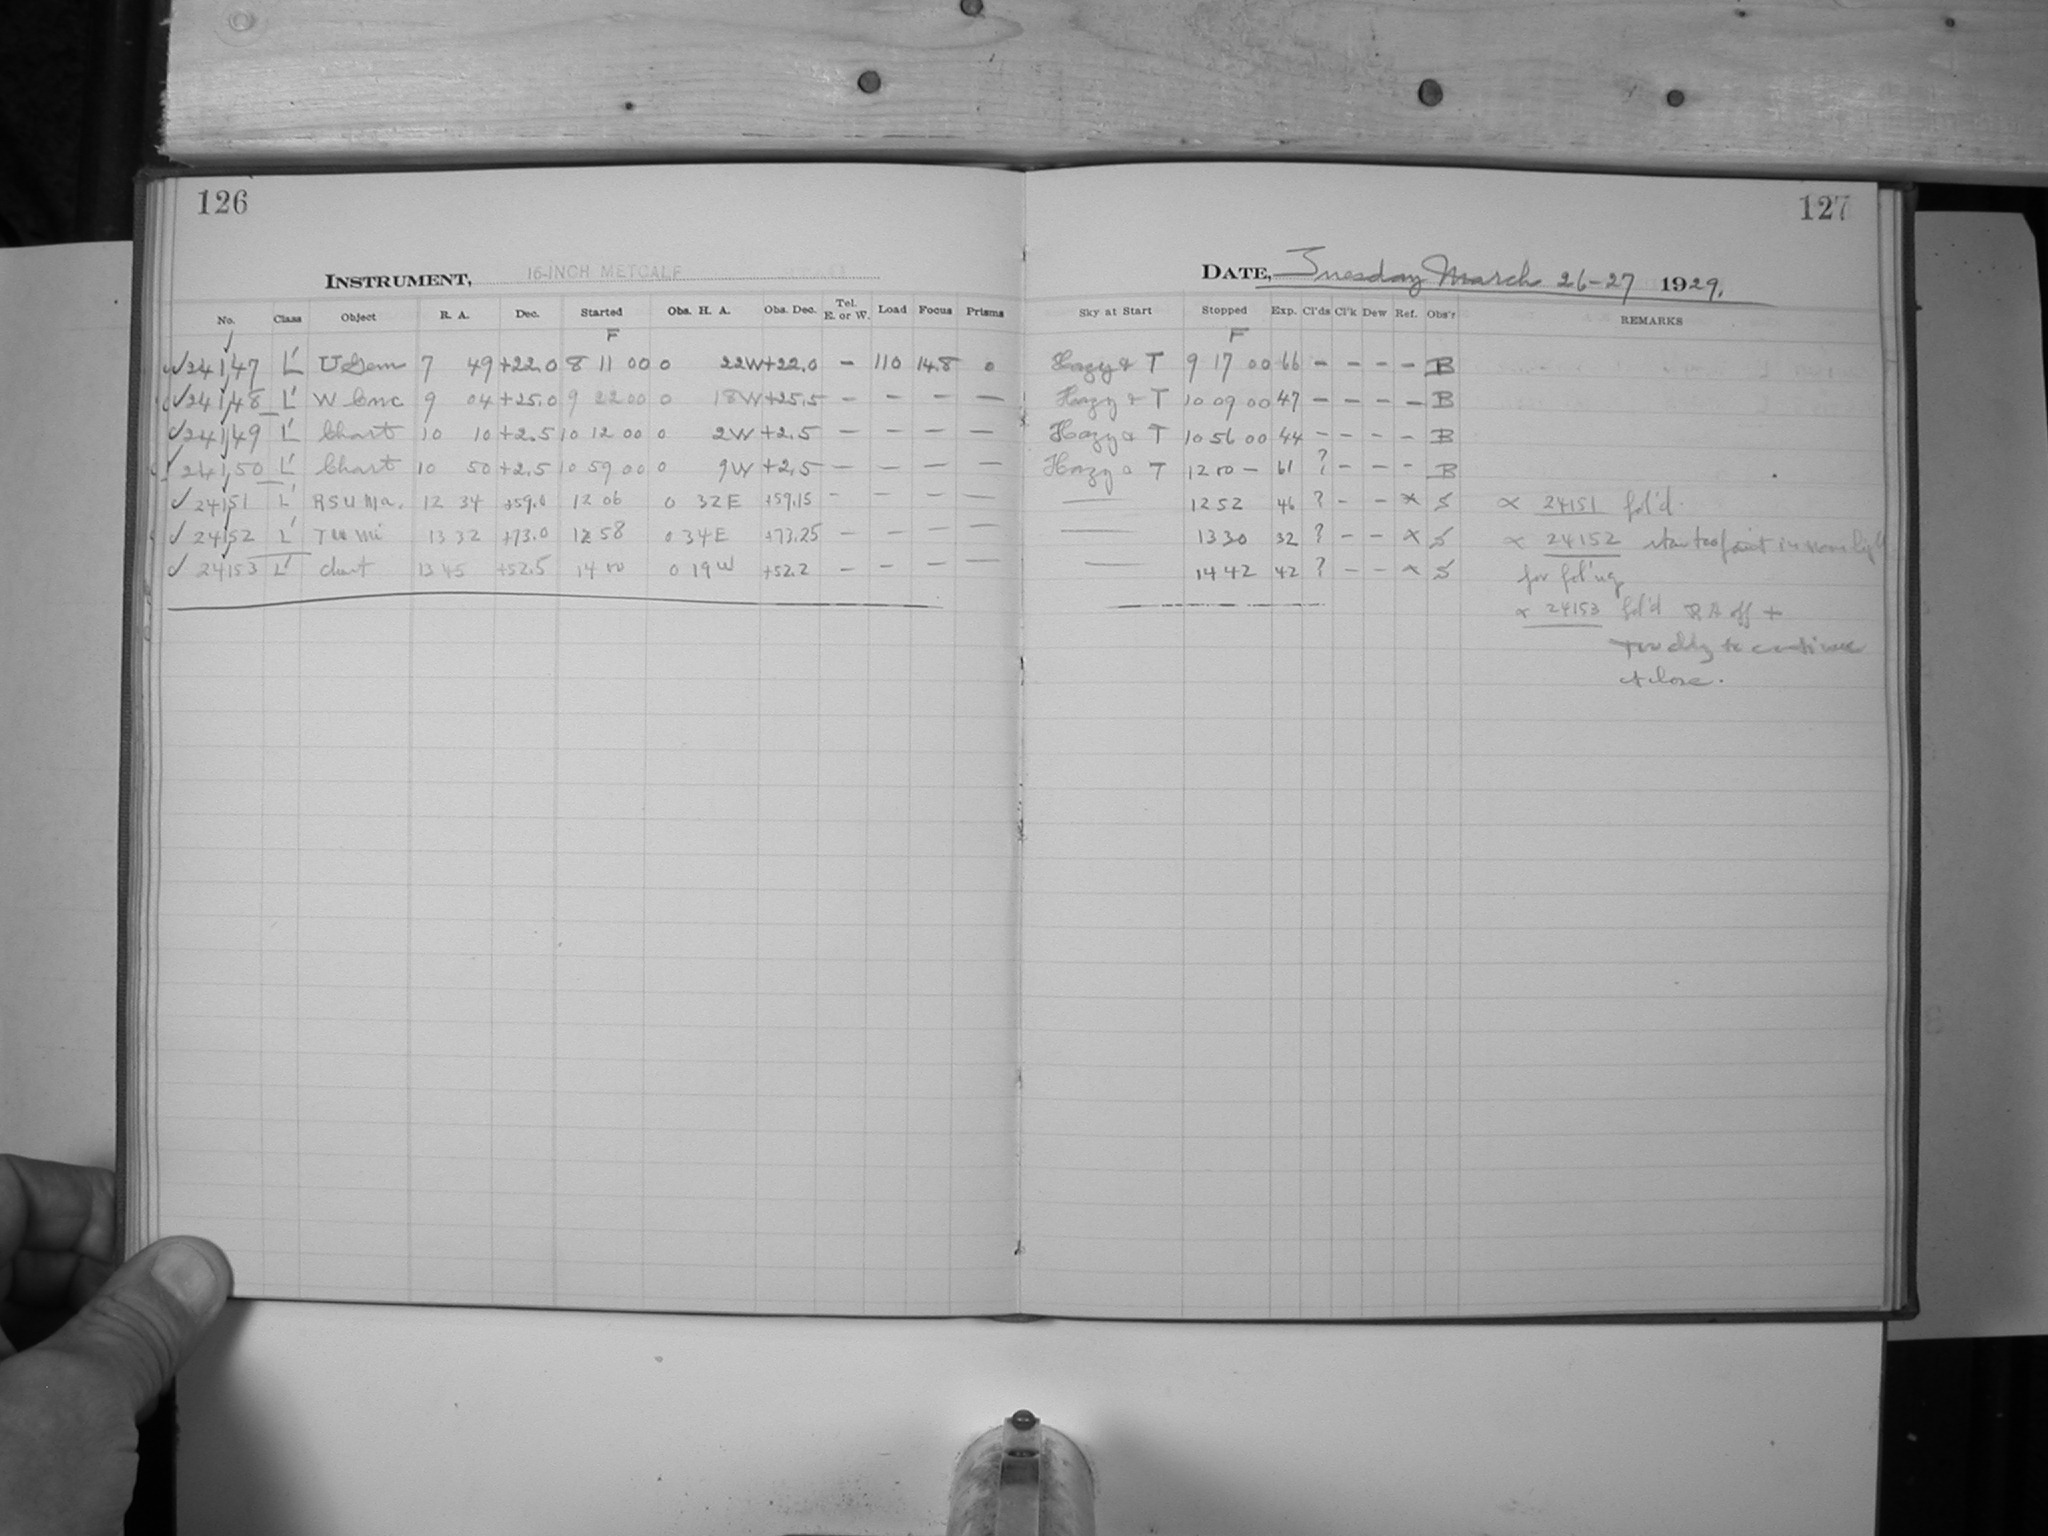 126
INSTRUMENT, 16-INCH METCALF
No. Class Object R. A. Dec. Started Obs. H. A. Obs. Dec. Tel. E. or W. Load Focus Prisms
F
✓24147 L' U Gem 7 49 +22.0 8 11 00 0 22W +22.0 – 110 14.8 0
✓24148 L' W Cnc 9 04 +25.0 9 22 00 0 18W +25.5 – – – –
✓24149 L' Chart 10 10 +2.5 10 12 00 0 2W +2.5 – – – –
24150 L' Chart 10 50 +2.5 10 59 00 0 9W +2.5 – – – –
✓24151 L' RSUMa. 12 34 +59.0 12 06 0 32E +59.15 – – – –
✓24152 L' TUMi 13 32 +73.0 12 58 0 34E +73.25 – – – –
✓24153 L' chart 13 45 +52.5 14 00 0 19W +52.2 – – – –
127
DATE, Tuesday March 26-27 1929.
Sky at Start Stopped Exp. Cl'ds Cl'k Dew Ref. Obs'r REMARKS
F
Hazy & T 9 17 00 66 – – – – B
Hazy & T 10 09 00 47 – – – – B
Hazy & T 10 56 00 44 – – – – B
Hazy & T 12 00 – 61 ? – – – B
— 12 52 46 ? – – × S × 24151 fol'd.
— 13 30 32 ? – – × S × 24152 star too faint in moonlight
— 14 42 42 ? – – × S for fol'ng
× 24153 fol'd RA off +
to continue
+ close.